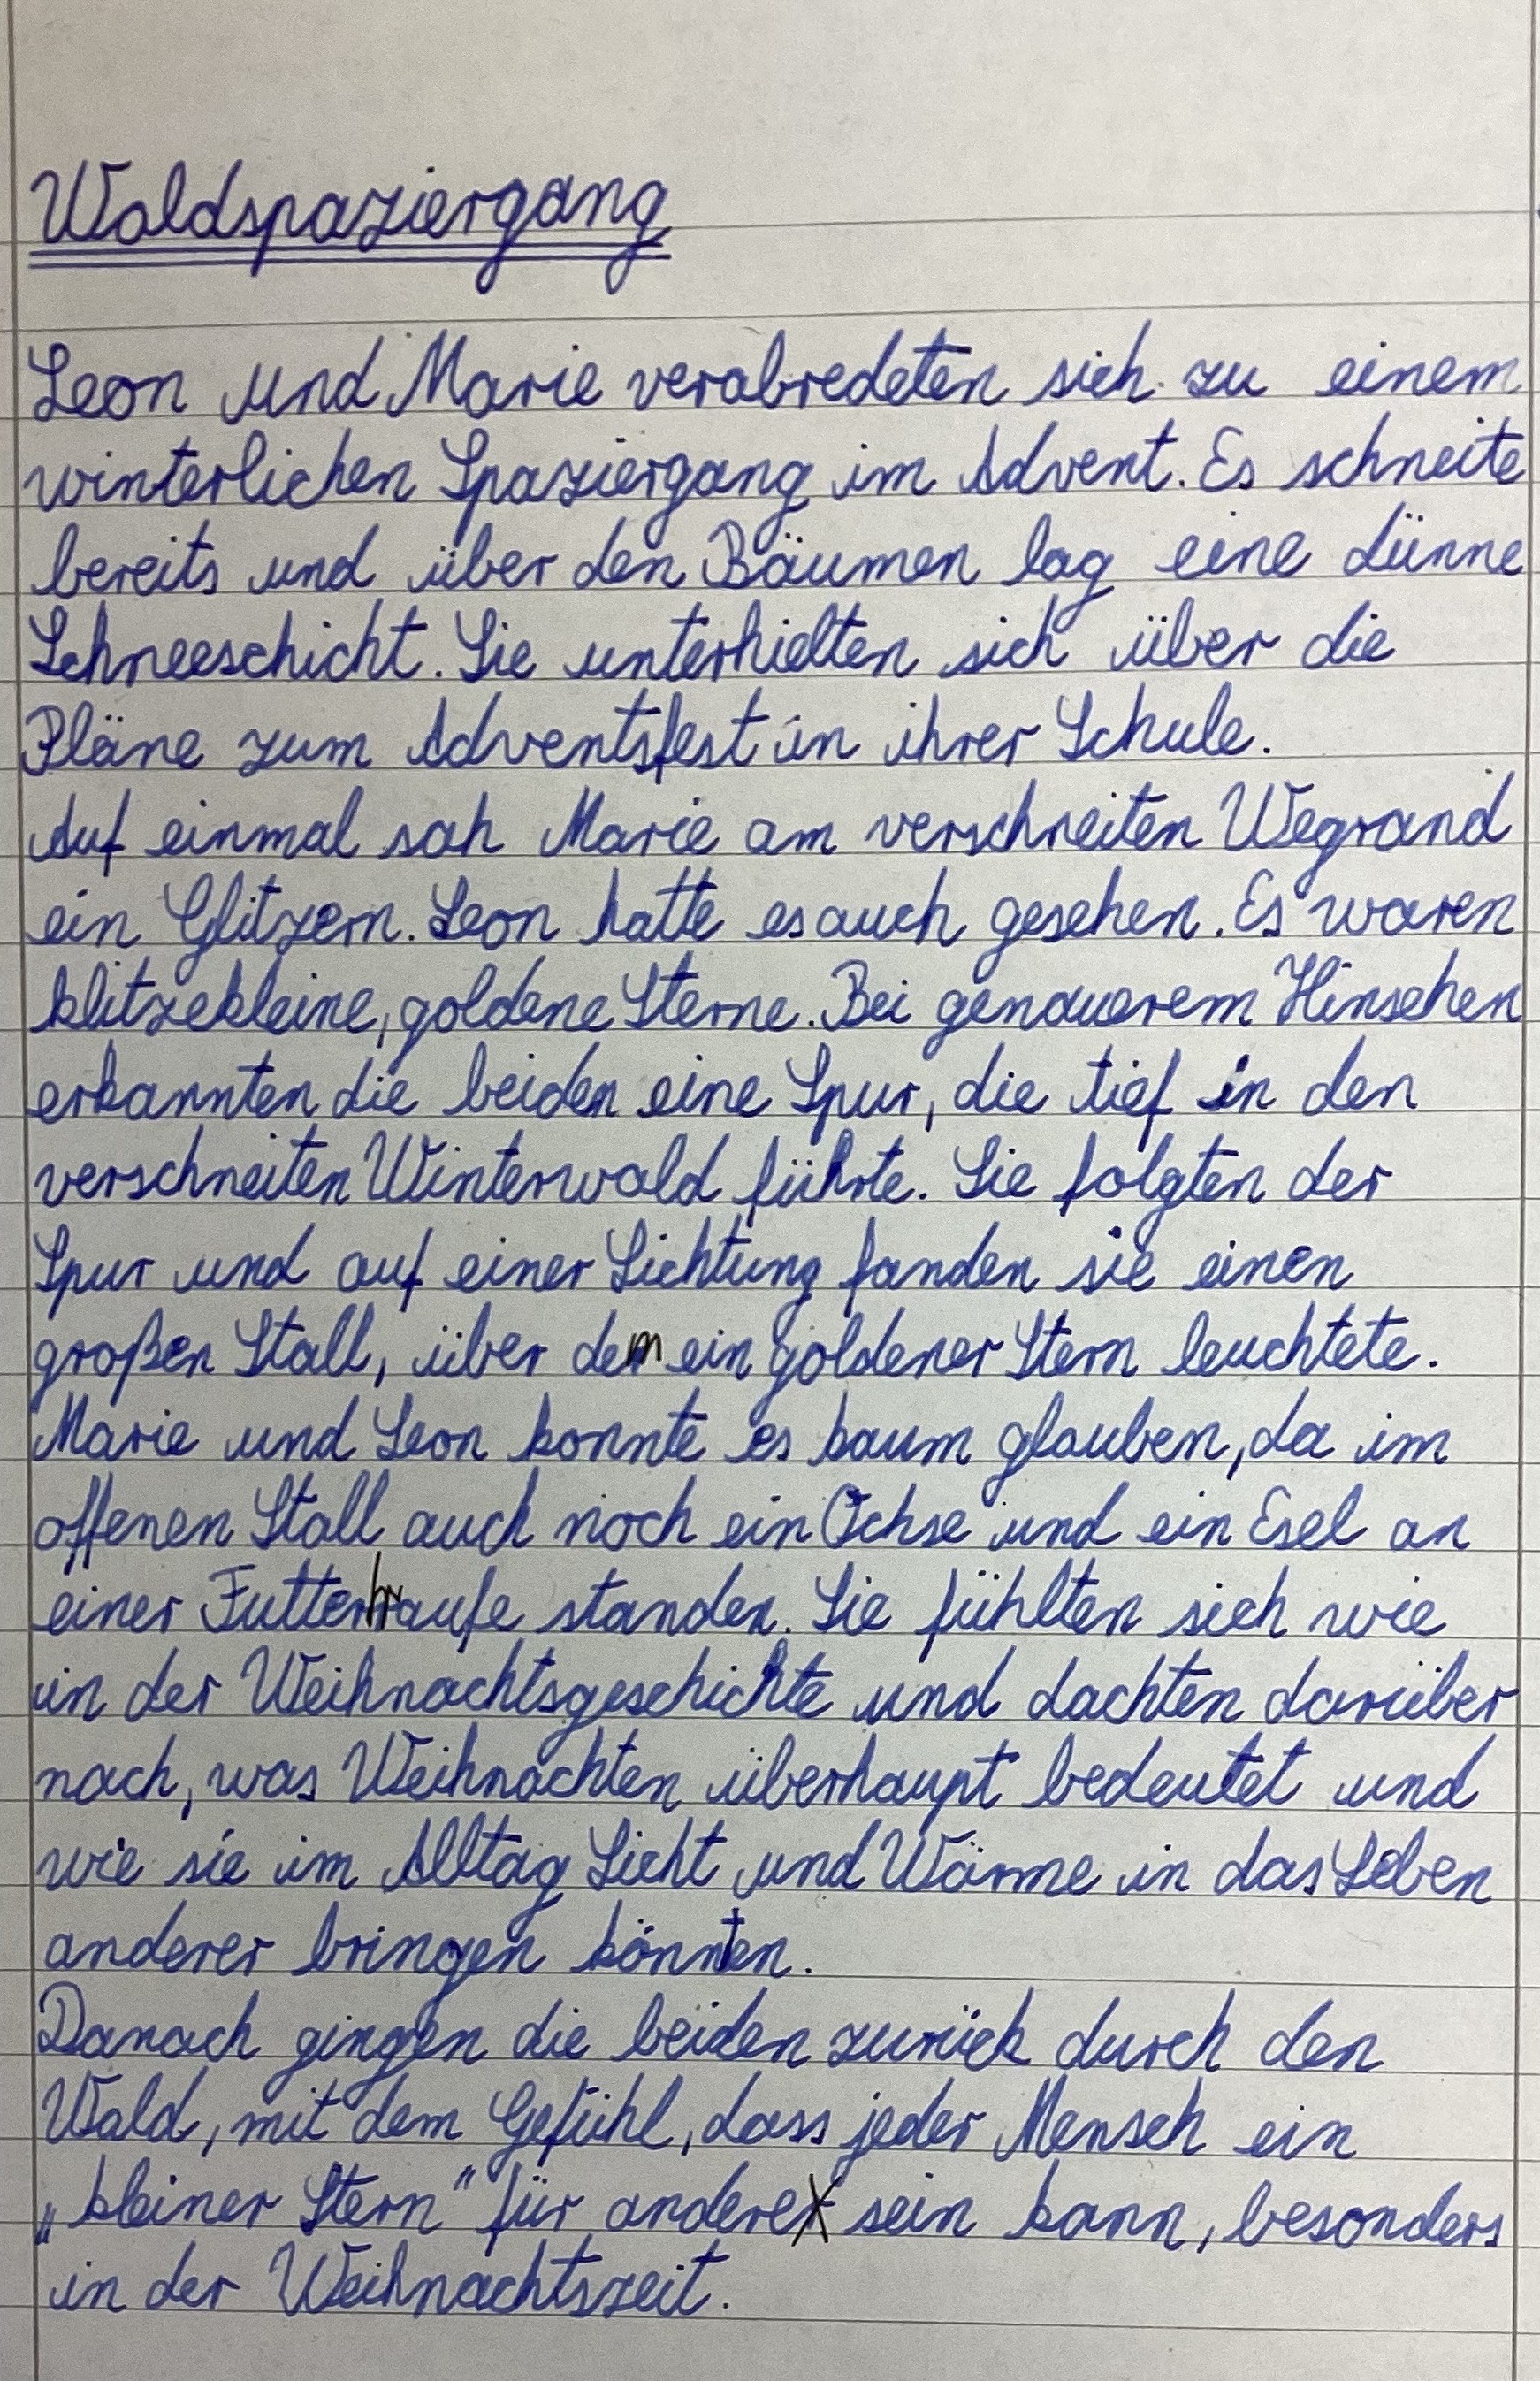 Waldspaziergang
Leon und Marie verabredeten sich zu einem
winterlichen Spaziergang im Advent. Es schneite
bereits und über den Bäumen lag eine dünne
Schneeschicht. Sie unterhielten sich über die
Pläne zum Adventsfest in ihrer Schule.
Auf einmal sah Marie am verschneiten Wegrand
ein Glitzern. Leon hatte es auch gesehen. Es waren
klitzekleine, goldene Sterne. Bei genauerem Hinsehen
erkannten die beiden eine Spur, die tief in den
verschneiten Winterwald führte. Sie folgten der
Spur und auf einer Lichtung fanden sie einen
großen Stall, über dem ein goldener Stern leuchtete.
Marie und Leon konnte es kaum glauben, da im
offenen Stall auch noch ein Ochse und ein Esel an
einer Futterraufe standen. Sie fühlten sich wie
in der Weihnachtsgeschichte und dachten darüber
nach, was Weihnachten überhaupt bedeutet und
wie sie im Alltag Licht und Wärme in das Leben
anderer bringen könnten.
Danach gingen die beiden zurück durch den
Wald, mit dem Gefühl, dass jeder Mensch ein
„kleiner Stern" für andere sein kann, besonders
in der Weihnachtszeit.